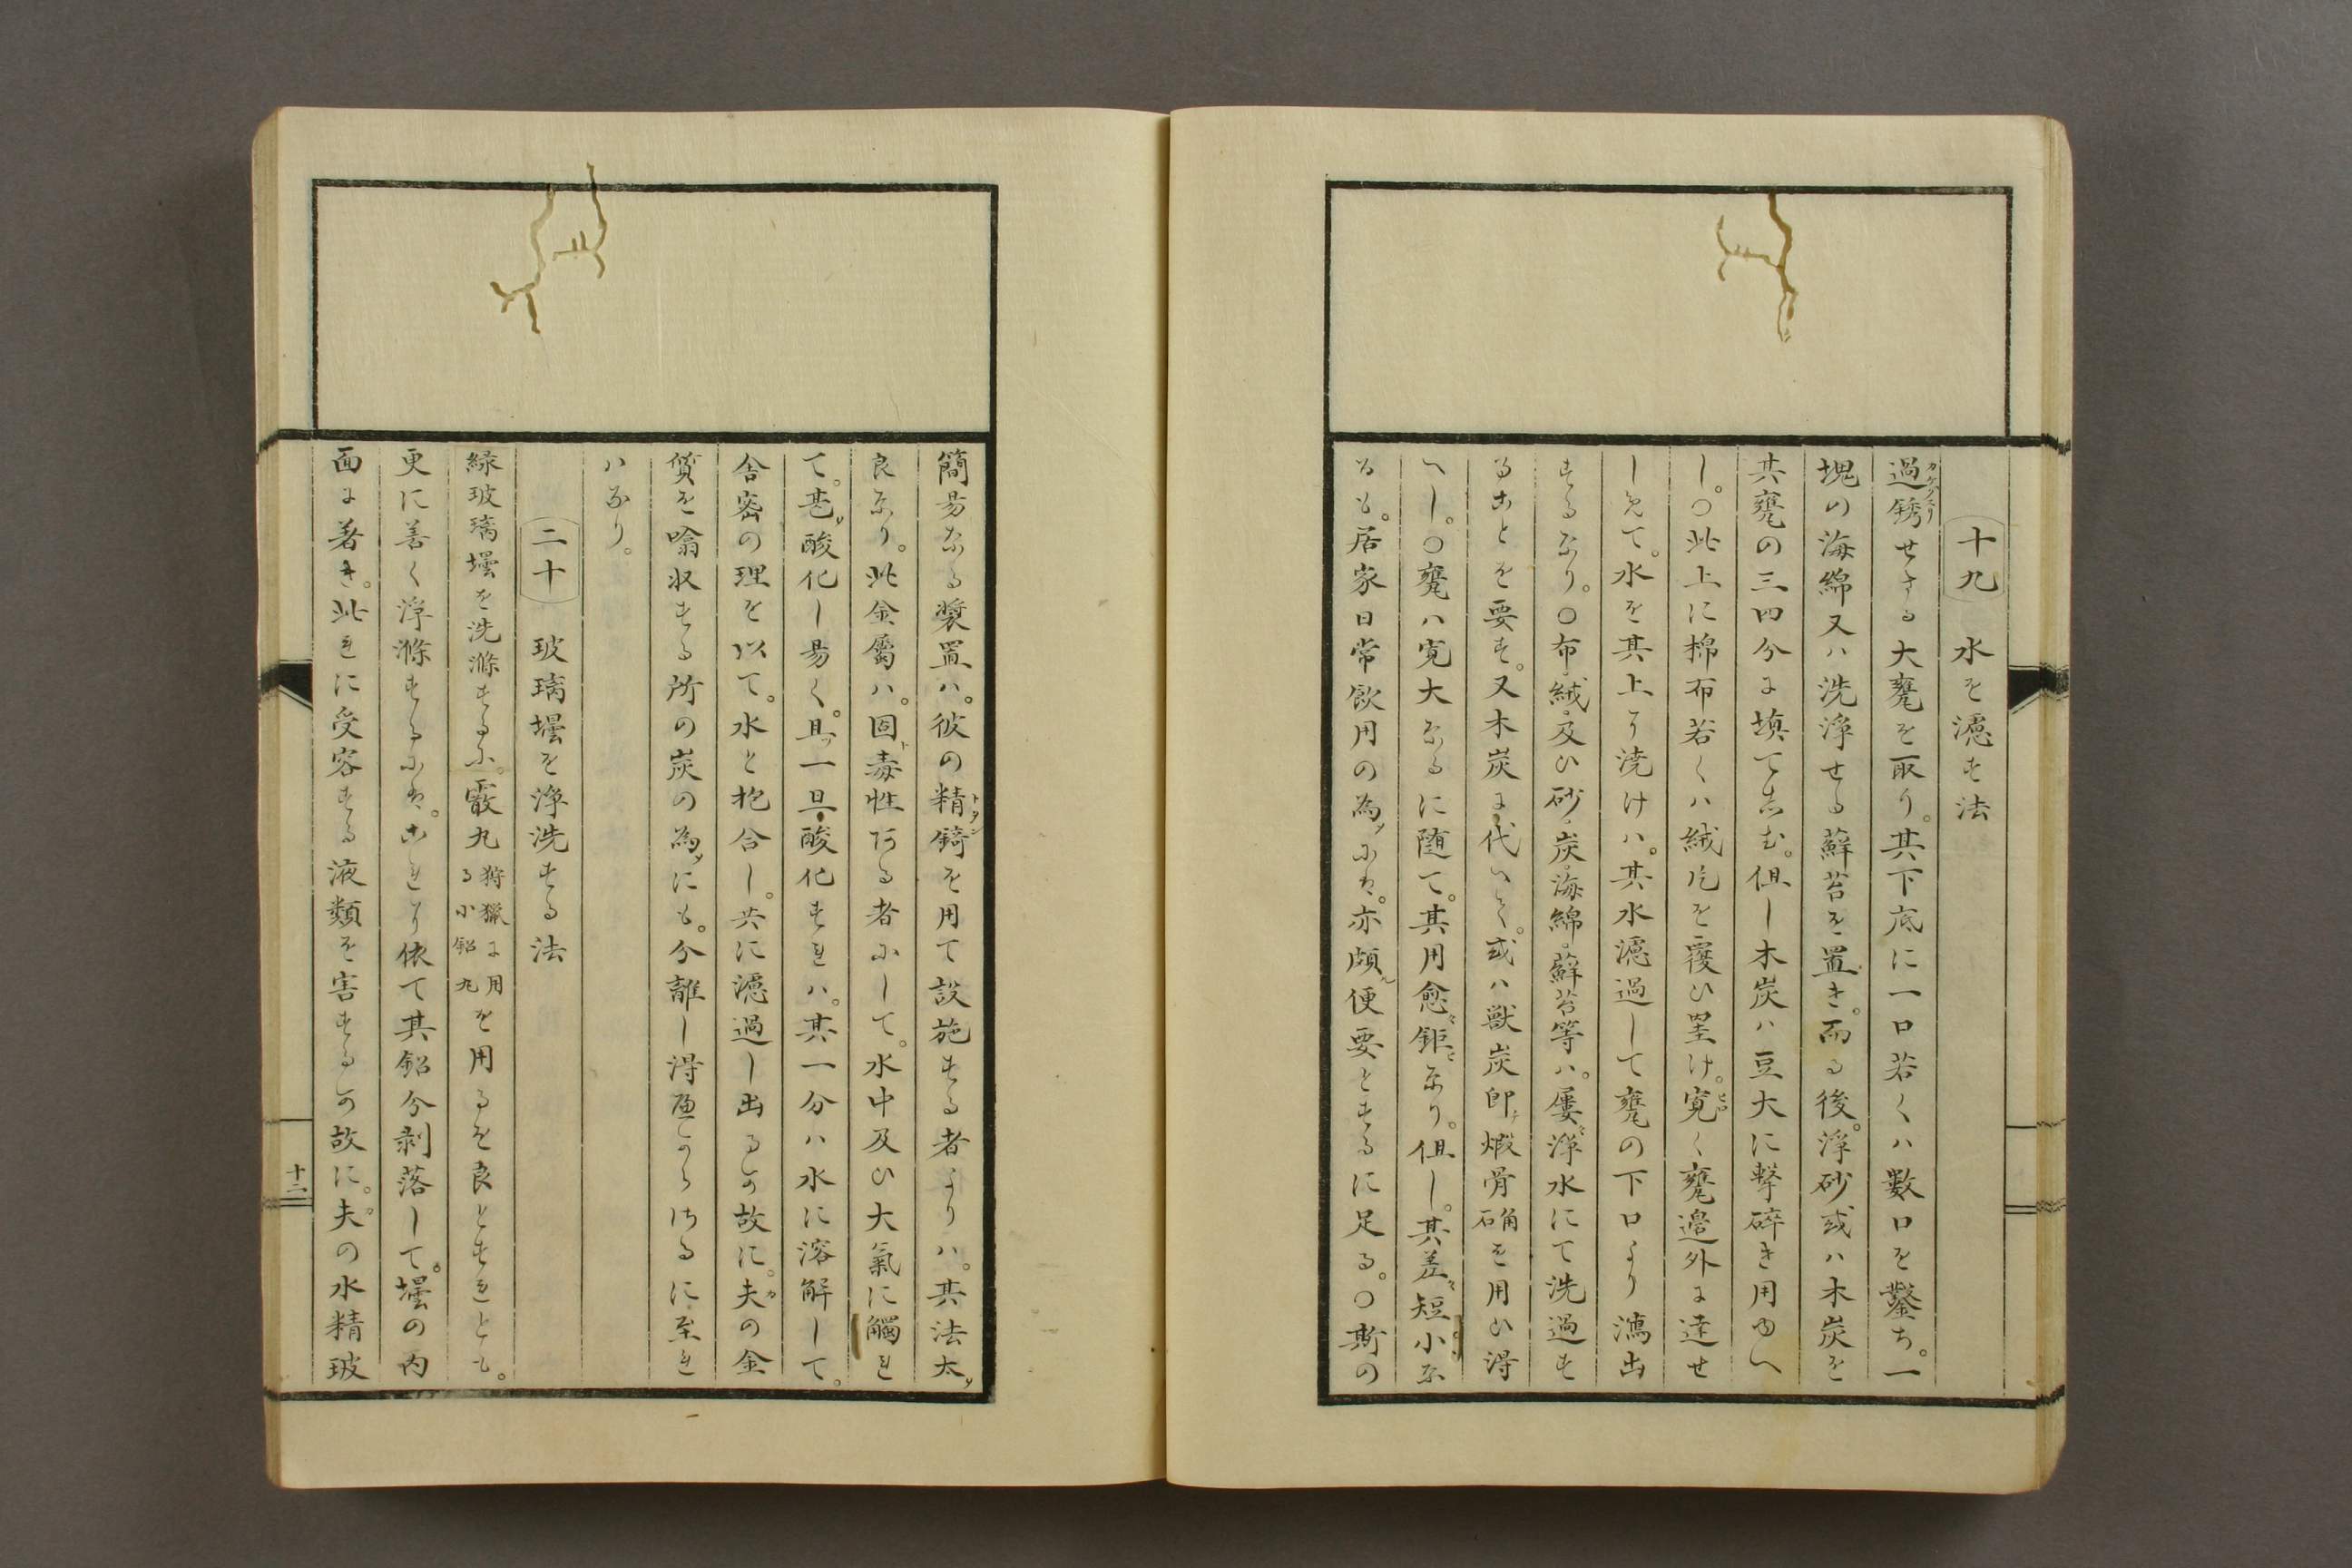 十九 水を濾す法
過銹せさる大甕を取り。其下底に一口若くハ數口を鑿ち。一
塊の海綿又ハ洗淨せる蘚苔を置き。而る後。淨砂或ハ木炭を
其甕の三四分に填て志む。但し木炭ハ豆大に撃碎き用ゆへ
し。〇此上に棉布若くハ絨片を覆ひ罣け。寛く甕邉外に達せ
しめて。水を其上より澆けハ。其水濾過して甕の下口より瀉出
するなり。〇布絨及ひ砂炭海綿蘚苔等ハ。屢淨水にて洗過す
ることを要す。又木炭に代へて。或ハ獣炭即煅骨角を用ひ得
へし。〇甕ハ寛大なるに随て。其用愈鉅なり。但し。其差短小な
るも。居家日常飲用の為にハ。亦頗便要とするに足る。〇斯の
簡昜なる裝置ハ。彼の精錡を用て設施する者よりハ。其法太
良なり。此金屬ハ。固毒性ある者にして。水中及ひ大氣に觸れ
て。甚酸化し昜く。且一旦酸化すれハ。其一分ハ水に溶解して。
舎密の理を以て。水と抱合し。共に濾過し出るか故に。夫の金
質を噏収する所の炭の為にも。分離し得へからさるに至れ
ハなり。
二十 玻璃壜を淨洗する法
緑玻璃壜を洗滌するに。霰丸狩獵に用る小鉛丸を用るを良とすれとも。
更に善く淨滌するにハ。これより依て其鉛分剥落して。壜の内
面に著き。此れに受容する液類を害するか故に。夫の水精玻
十二